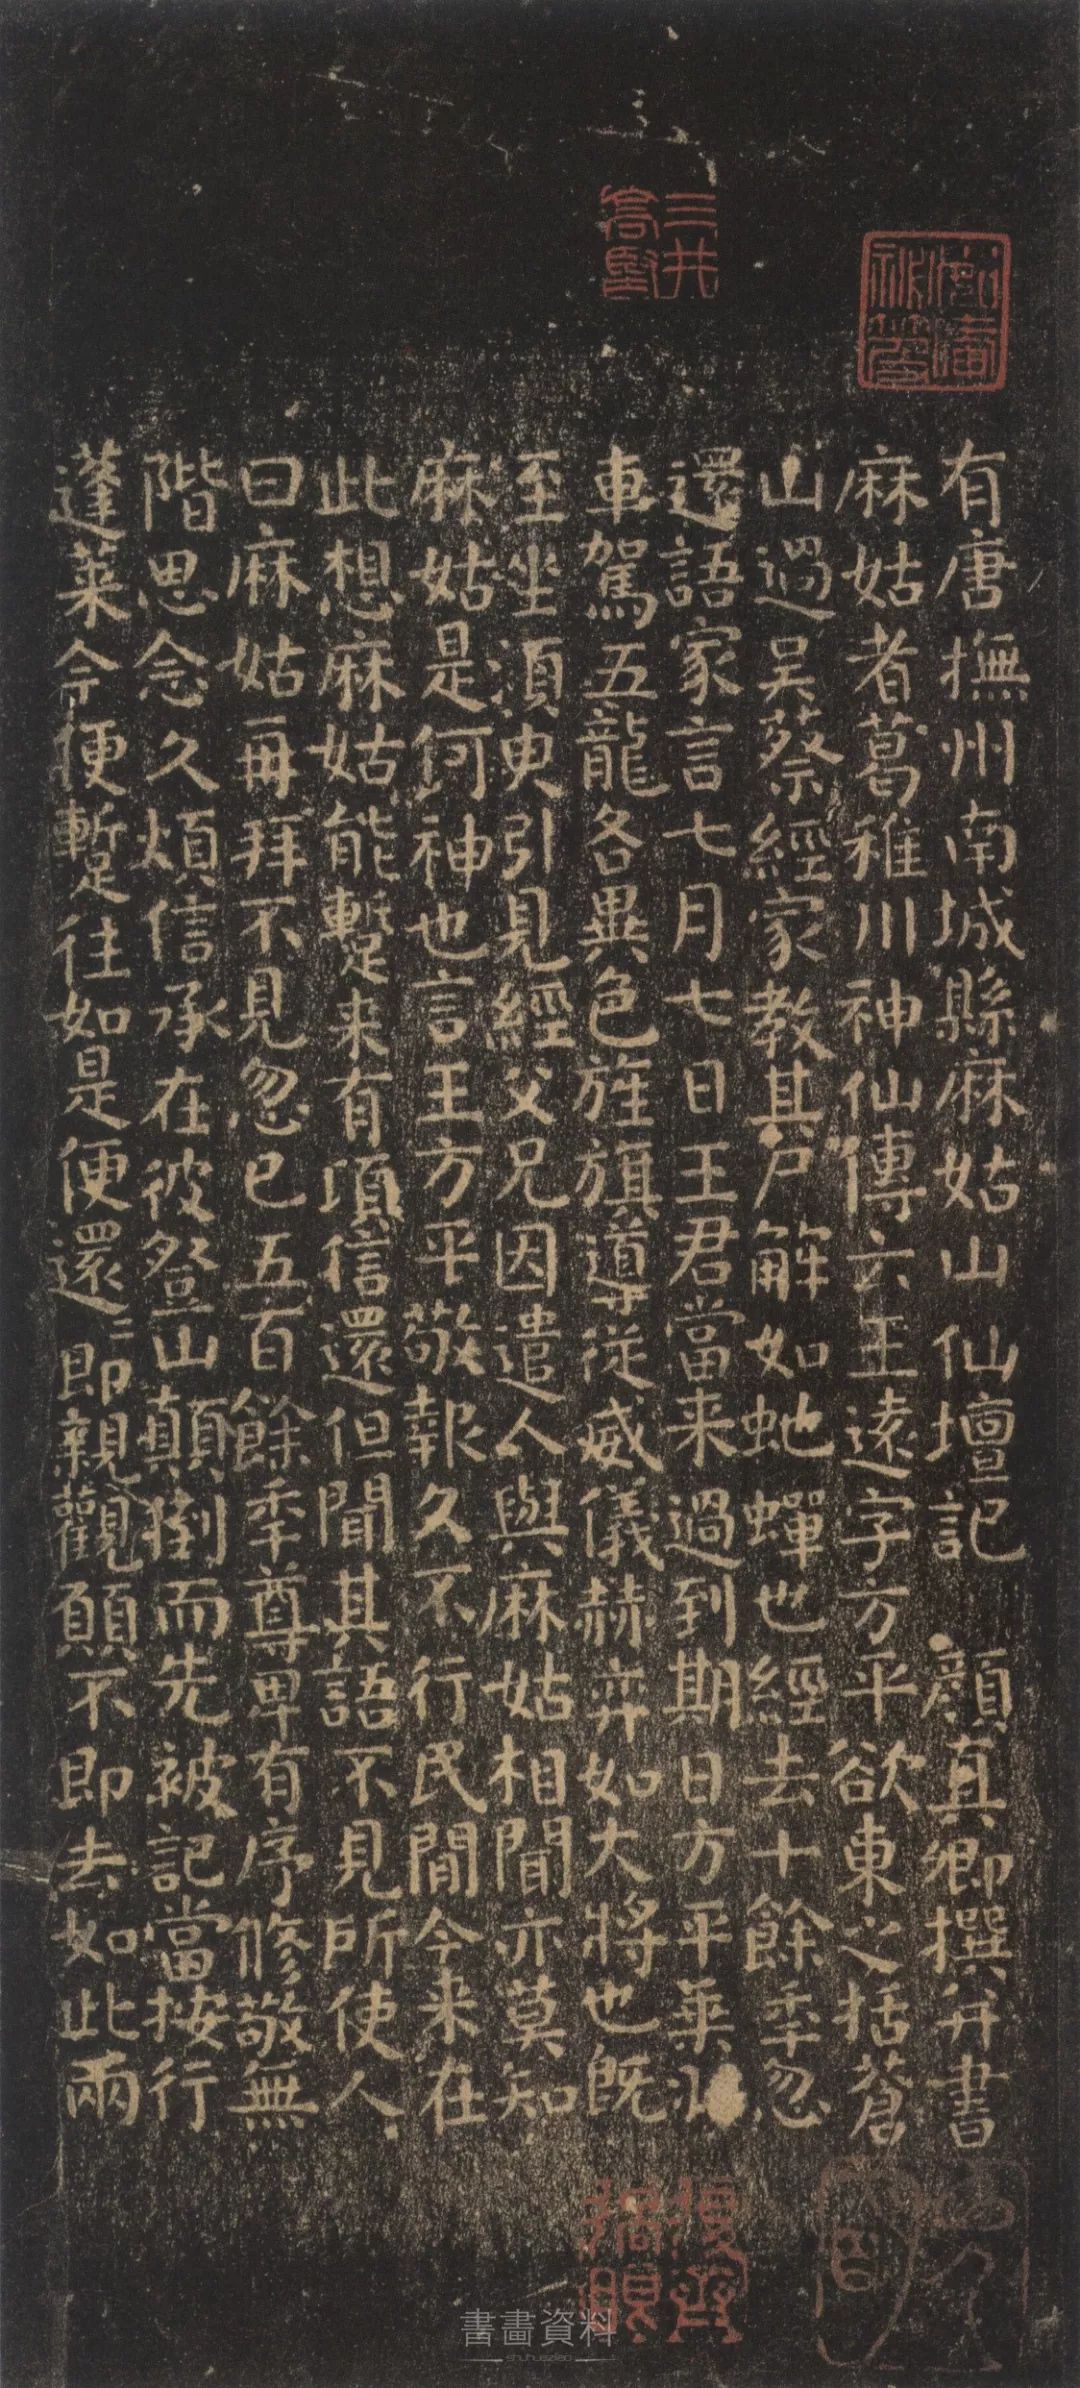 有唐撫州南城縣麻姑山仙壇記 顏真卿撰并書
麻姑者葛稚川神仙傳云王遠字方平欲東之括蒼
山過吳蔡經家教其尸解如虵蟬也經去十餘年忽
還語家言七月七日王君當来過到期日方平乗
車駕五龍各異色旌旗導從威儀赫弈如大將也既
至坐須臾引見經父兄因遣人與麻姑相聞亦莫知
麻姑是何神也言王方平敬報久不行民間今来在
此想麻姑能暫来有頃信還但聞其語不見所使人
曰麻姑再拜不見忽已五百餘年尊卑有序修敬無
階思念久煩信承在彼登山顛倒而先被記當按行
蓬萊今便暫往如是便還=即親觀願不即去如此兩
三井
書畫資料
shuhuaziliao